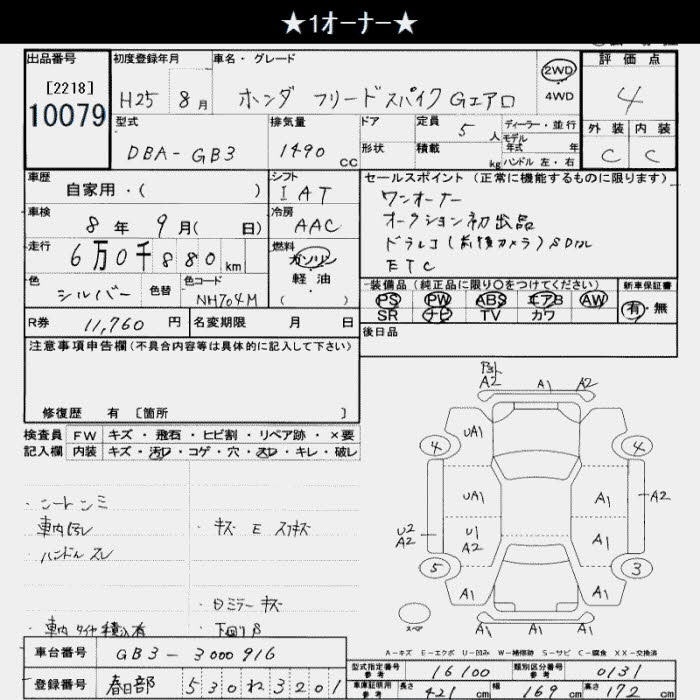 ★1オーナー★
出品番号
[2218]
10079
初度登録年月
H25 8月
車名・グレード
ホンダ フリードスパイク Gエアロ
2WD
4WD
評価点
4
外装 内装
C C
型式
DBA-GB3
排気量
1490 CC
ドア
形状
定員 5人
積載 kg
ディーラー・並行
モデル
年式 年
ハンドル 左・右
車歴
自家用・( )
シフト
IAT
セールスポイント(正常に機能するものに限ります)
ワンオーナー
オークション初出品
ドラレコ(前後カメラ)SDナビ
ETC
車検
8年 9月( 日)
冷房
AAC
走行
6万0千880km
燃料
ガソリン
軽油
( )
色
シルバー
色替
色コード
NH704M
装備品(純正品に限り○をつけてください)
PS PW ABS エアB AW
SR ナビ TV カワ
新車保証書
有・無
R券 11,760円
名変期限 月 日
後日品
注意事項申告欄(不具合内容等は具体的に記入して下さい)
修復歴 有 〔箇所 〕
検査員 FW キズ・飛石・ヒビ割・リペア跡・×要
記入欄 内装 キズ・汚れ・コゲ・穴・スレ・キレ・破レ
・シートシミ
・車内汚レ
・ハンドルスレ
・キズ E スリキズ
・ミラーキズ
・車内タイヤ積込有
・下回りサビ
A2 A1 A2
4 UA1 4
UA1 A1 A2
U2 A2 U1 A2 A1
5 A1 A1 3
スペア
A1 A1 A1
A-キズ E-エクボ U-凹み W-補修跡 S-サビ C-腐食 XX-交換済
車台番号 GB3-3000916
登録番号 春日部 530 れ 3201
型式指定番号 参考 16100
類別区分番号 参考 0131
車庫証明用 参考 長さ 421cm 幅 169cm 高さ 172cm